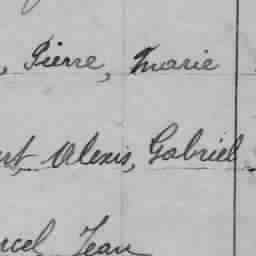 , Pierre, Marie
rt, Alexis, Gabriel
rcel Jean